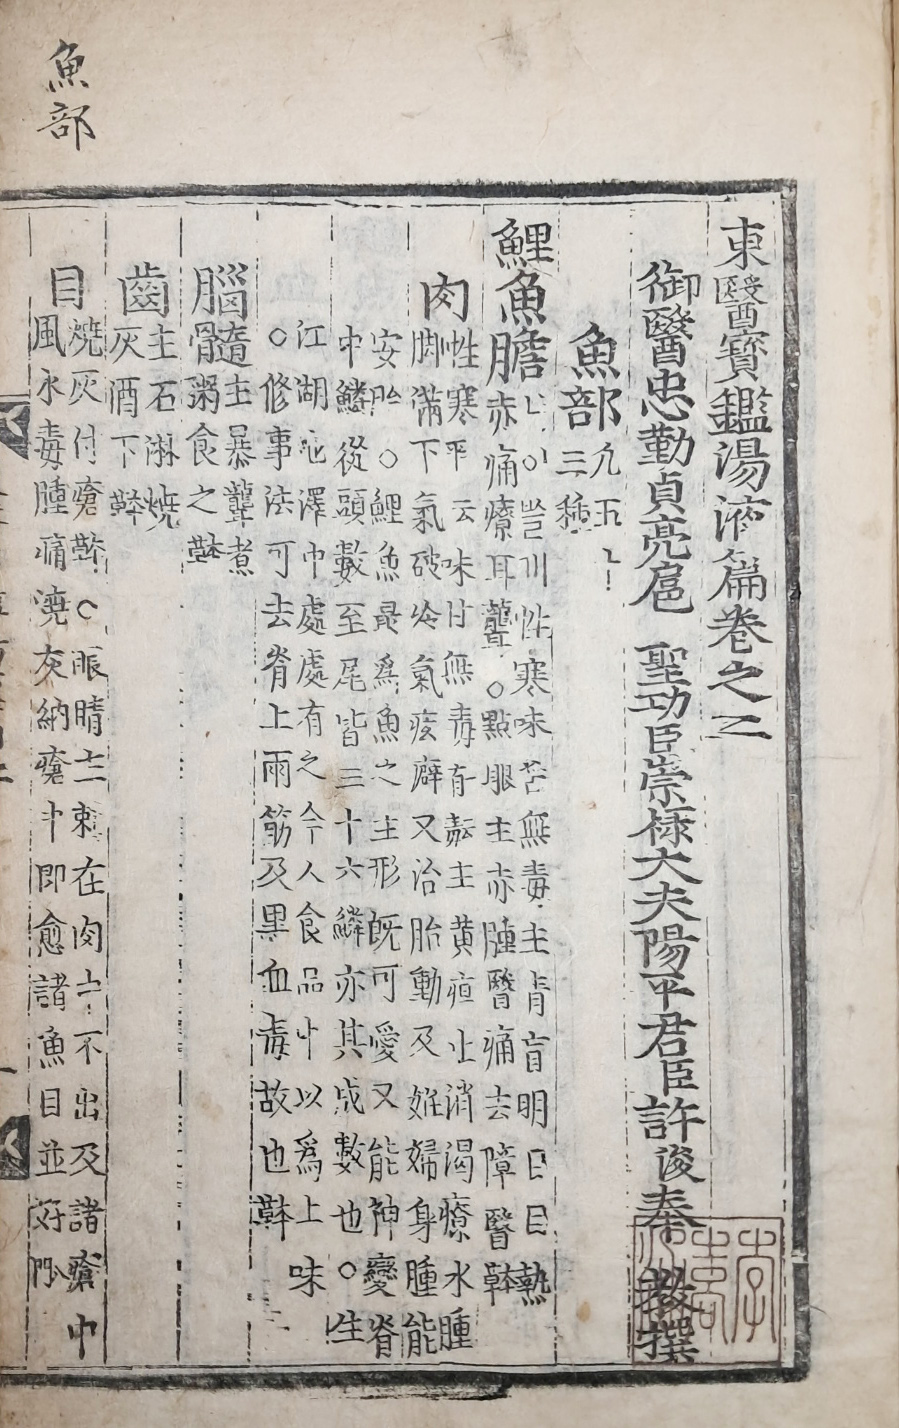 魚部
東醫寶鑑湯液篇卷之二
御醫忠勤貞亮扈 聖功臣崇祿大夫陽平君臣許浚奉 敎撰
魚部 凡五
三種
鯉魚膽 性寒味苦無毒主靑盲明目目熱
赤痛療耳聾○點眼主赤腫瞖痛去障瞖
肉 性寒平云味甘無毒有毒主黃疸止消渴療水腫
脚滿下氣破冷氣痃癖又治胎動及姙婦身腫能
安胎○鯉魚最爲魚之主形旣可愛又能神變脊
中鱗從頭數至尾皆三十六鱗亦其成數也○生
江湖池澤中處處有之今人食品中以爲上味
○修事法可去脊上兩筋及黑血毒故也
腦髓 主暴聾煮
粥食之
齒 主石淋燒
灰酒下
目 燒灰付瘡○眼睛主刺在肉中不出及諸瘡中
風水毒腫痛燒灰納瘡中卽愈諸魚目並好